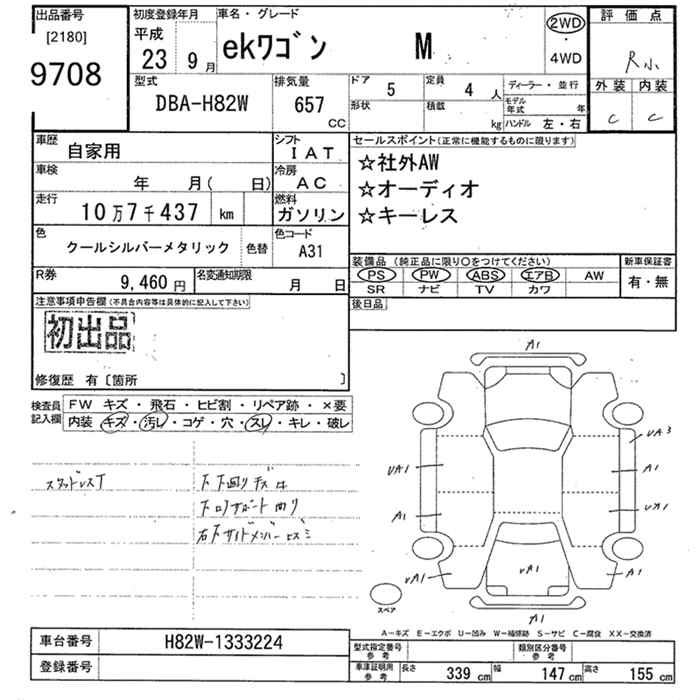 出品番号
[2180]
9708
初度登録年月
平成
23 9月
車名・グレード
ekワゴン M
2WD
・
4WD
評価点
R
外装 内装
C C
型式
DBA-H82W
排気量
657
CC
ドア
5
定員
4人
形状
積載
kg
ディーラー・並行
モデル年式 年
ハンドル 左・右
車歴
自家用
シフト
IAT
車検
年 月( 日)
冷房
AC
走行
10万7千437 km
燃料
ガソリン
色
クールシルバーメタリック
色替
色コード
A31
R券
9,460円
名変通知期限
月 日
セールスポイント(正常に機能するものに限ります)
☆社外AW
☆オーディオ
☆キーレス
装備品 (純正品に限り〇をつけてください)
PS PW ABS エアB AW
SR ナビ TV カワ
新車保証書
有・無
後日品
注意事項申告欄(不具合内容等は具体的に記入して下さい)
初出品
修復歴 有〔箇所 〕
検査員記入欄
FW キズ・飛石・ヒビ割・リペア跡・×要
内装 キズ・汚レ・コゲ・穴・スレ・キレ・破レ
スタッドレスT
下下廻りキズ
下ロアサポート曲り
右Fサイドメンバー
A1
UA3
UA1
A1
A1
UA1
UA1
UA1
A1
A1
スペア
A-キズ E-エクボ U-凹み W-補修跡 S-サビ C-腐食 XX-交換済
車台番号 H82W-1333224
登録番号
型式指定番号参考
類別区分番号参考
車庫証明用参考
長さ 339 cm 幅 147 cm 高さ 155 cm